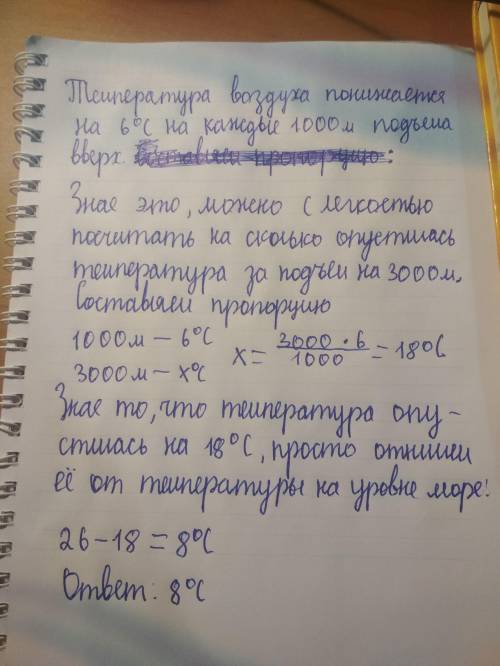 Температура воздуха понижается
на 6°C на каждые 1000м подъема
вверх. Составляем пропорцию:
Зная это, можно с легкостью
посчитать на сколько опустилась
температура за подъем на 3000м.
Составляем пропорцию
1000м – 6°C
3000м – x°C
x = 3000 · 6 / 1000 = 18°C
Зная то, что температура опу-
стилась на 18°C, просто отнимем
её от температуры на уровне море!
26 – 18 = 8°C
Ответ: 8°C